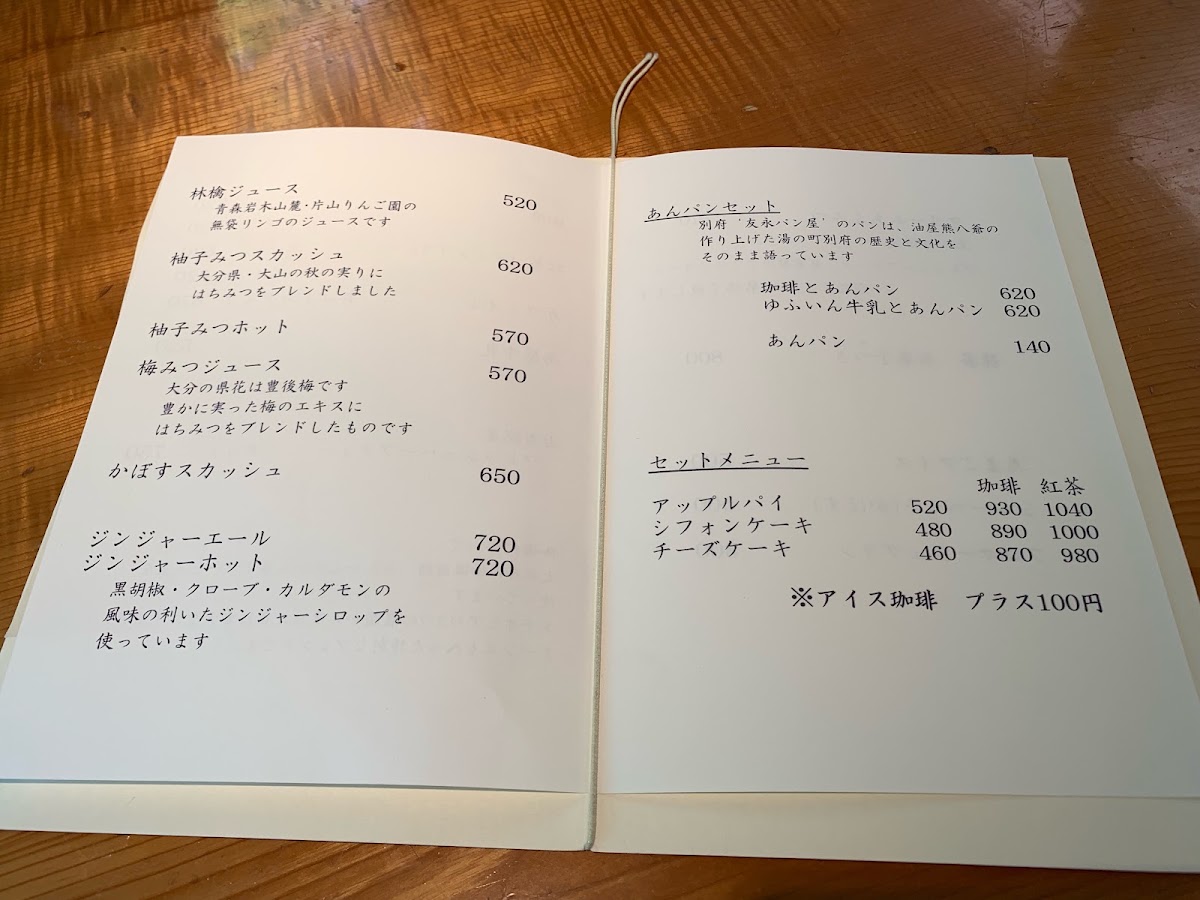 林檎ジュース 520
青森岩木山麓・片山りんご園の
無袋リンゴのジュースです
柚子みつスカッシュ 620
大分県・大山の秋の実りに
はちみつをブレンドしました
柚子みつホット 570
梅みつジュース 570
大分の県花は豊後梅です
豊かに実った梅のエキスに
はちみつをブレンドしたものです
かぼすスカッシュ 650
ジンジャーエール 720
ジンジャーホット 720
黒胡椒・クローブ・カルダモンの
風味の利いたジンジャーシロップを
使っています
あんパンセット
別府‘友永パン屋’のパンは、油屋熊八爺の
作り上げた湯の町別府の歴史と文化を
そのまま語っています
珈琲とあんパン 620
ゆふいん牛乳とあんパン 620
あんパン 140
セットメニュー
珈琲 紅茶
アップルパイ 520 930 1040
シフォンケーキ 480 890 1000
チーズケーキ 460 870 980
※アイス珈琲 プラス100円